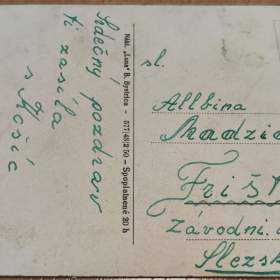 Srdečný pozdrav
ti zasíla
z Košic
Nákl. „Luna" B. Bystrica - 577/48/2·50 - Spoplatnené 20 h
sl.
Allbina
Madzie
Frišt
Závodní.
Slezs